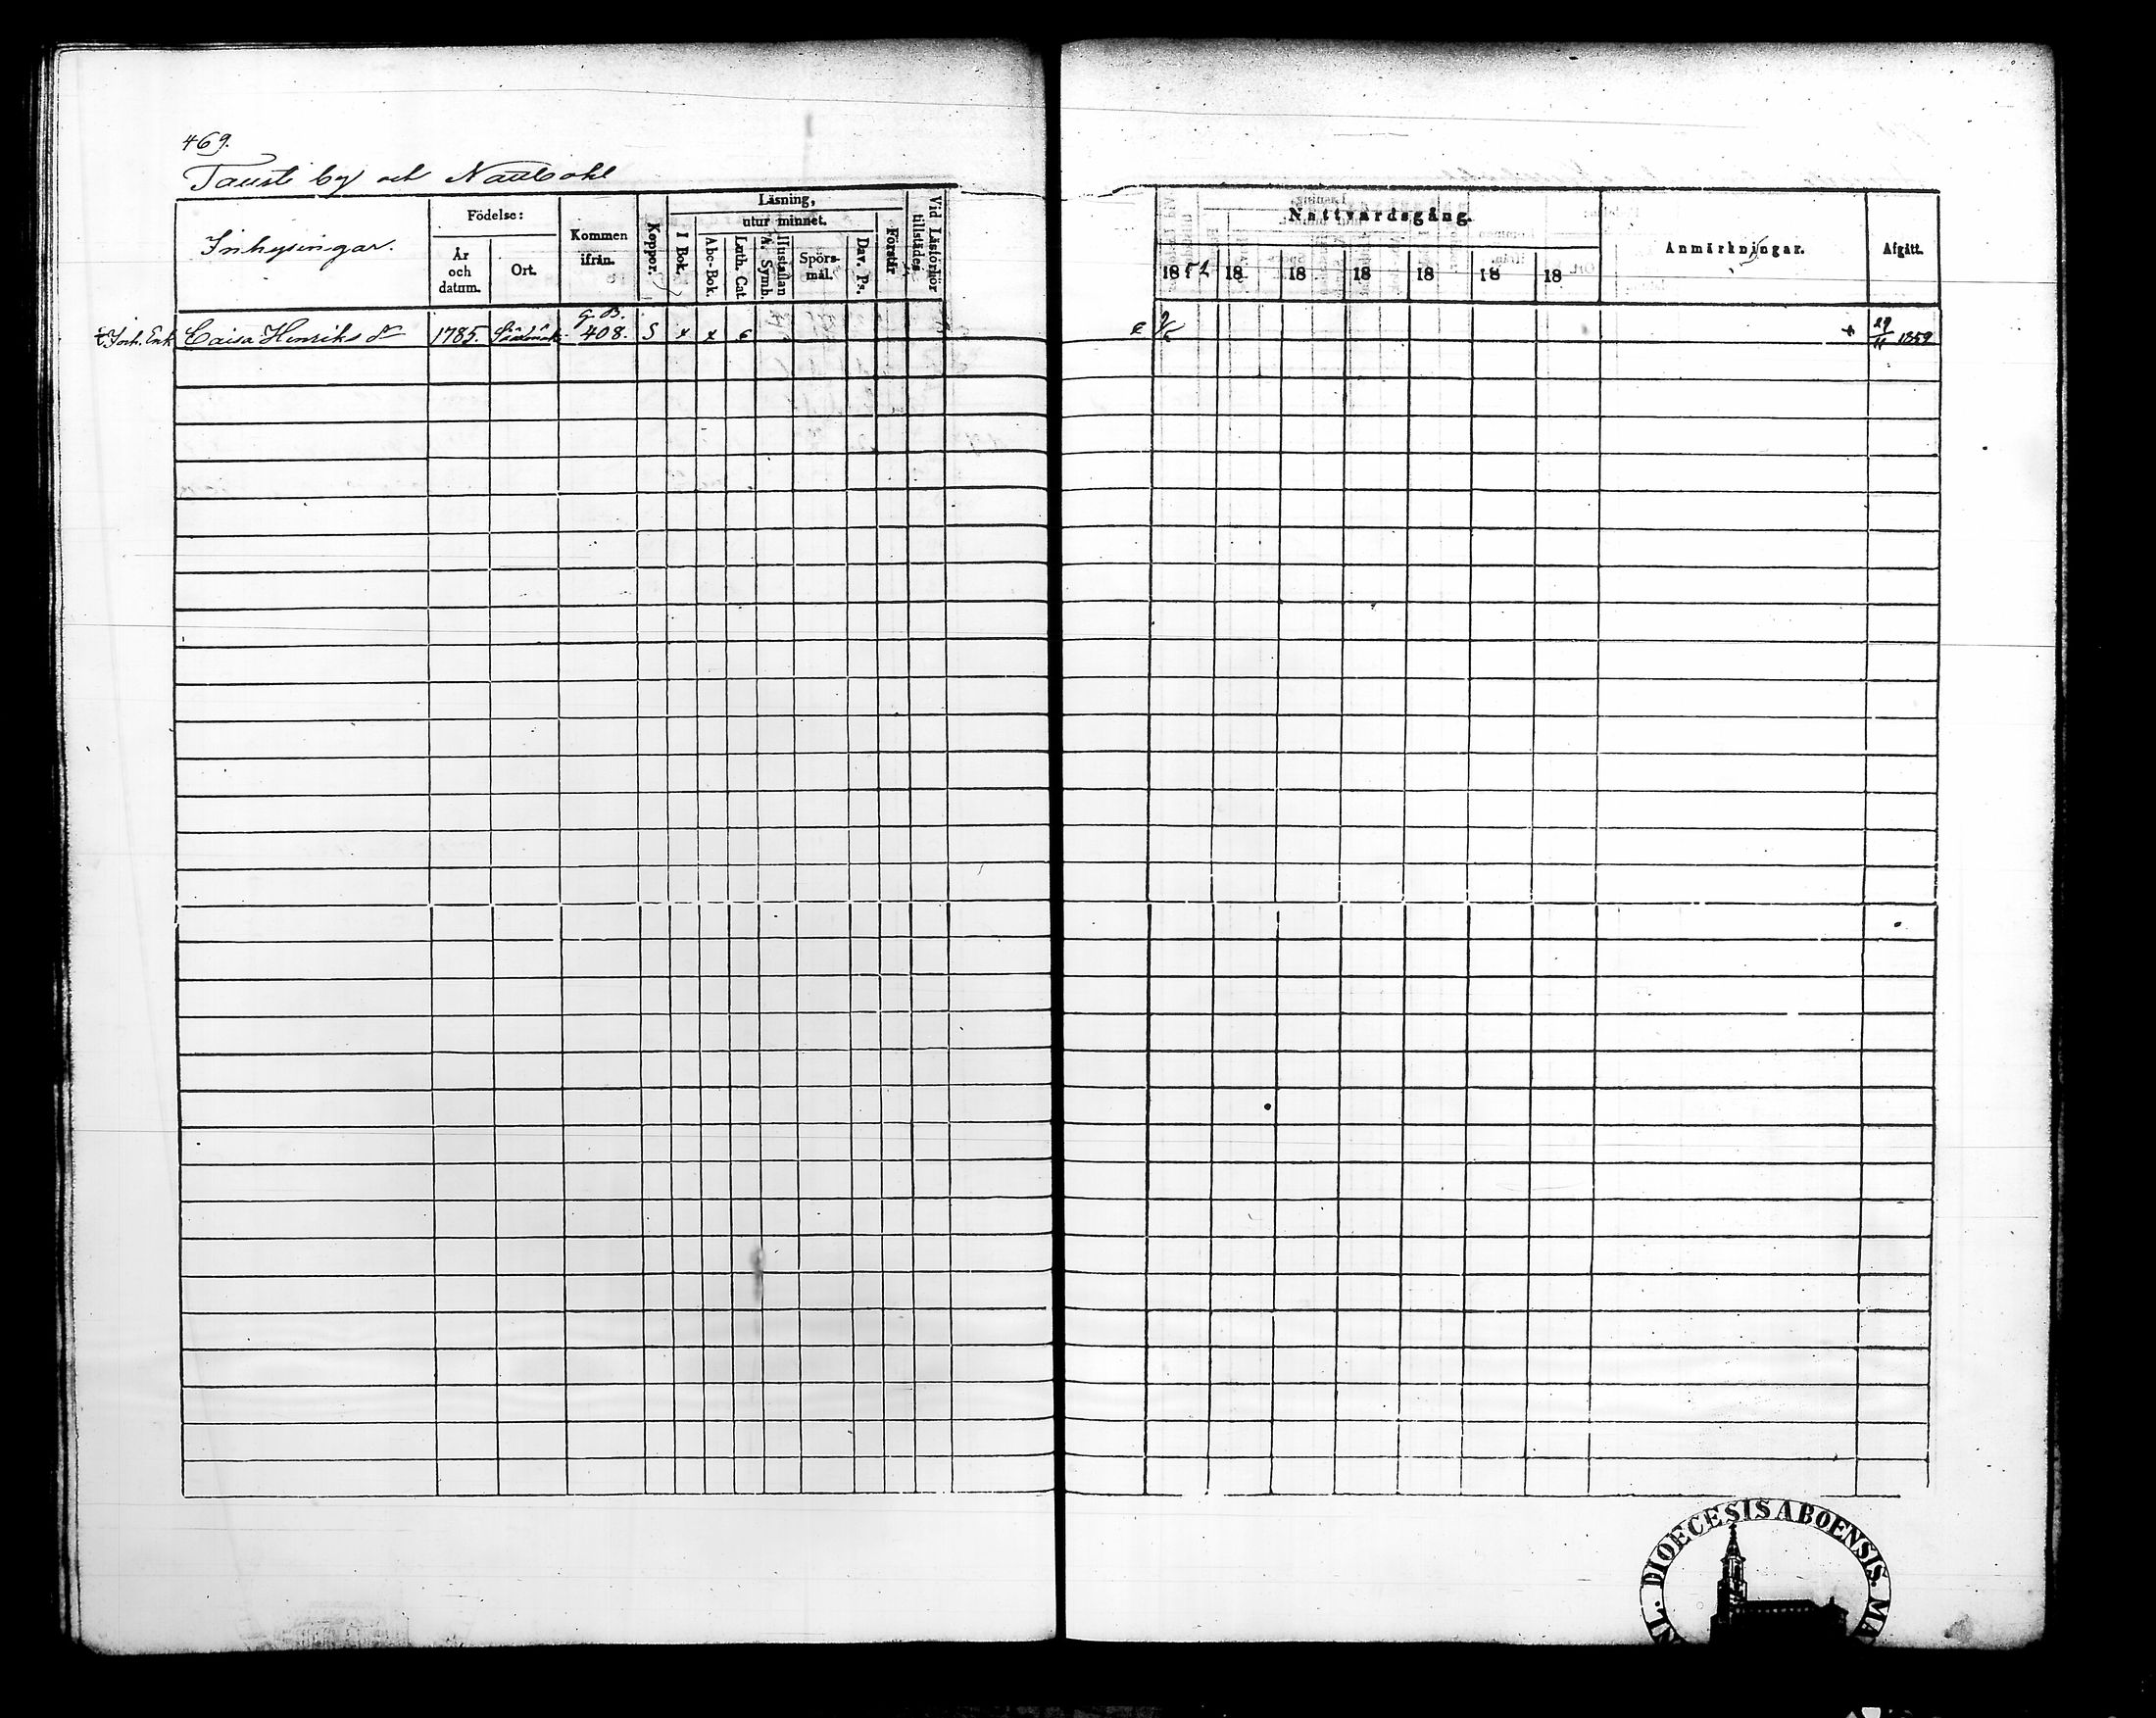 469.
Tausti by och
Inhysingar.
Födelse:
År och datum.
Ort.
Kommen ifrån.
Koppor.
Läsning,
utur minnet.
I Bok.
Abc-Bok.
Luth. Cat.
Hustaflan A. Symb.
Spörsmål.
Dav. Ps.
Förstår
Vid Läsförhör tillstädes
Nattvardsgång.
1852 18 18 18 18 18 18
Anmärkningar.
Afgått.
G. B.
† Inh. Enk. Caisa Henriks dr 1785. 408. S x x + 29/11 1859
DIOECESIS ABOENSIS.